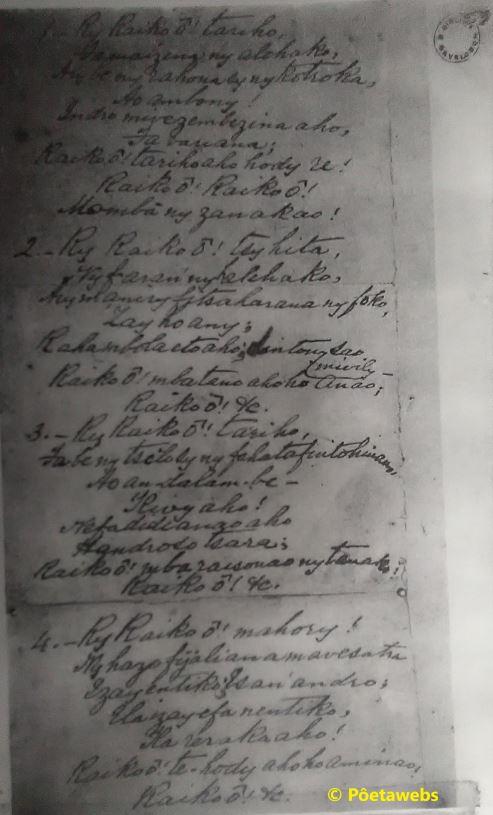 1.- Ry Raiko ô! tariho,
Fa maizina ny alehako,
Ary be ny rahona sy ny kotroka,
Ao ambony!
Indro miezembezina aho,
Fa variana;
Raiko ô! tariho aho hody re!
Raiko ô! Raiko ô!
Mombà ny zanakao!
2.- Ry Raiko ô! tsy hita,
Ny faran' ny alehako,
Ary manery fitsaharana ny foko,
Zay ho any;
Raha mbola eto aho; sao
mivily
Raiko ô! mba tano aho ho Anao;
Raiko ô! &c.
3.- Ry Raiko ô! tariho,
Fa be ny tsilo sy ny fahatafintohinana,
Ao an-dalam-be -
Kivy aho!
Nefa didianao aho
Handroso tsara;
Raiko ô! mba raisonao ny tanako!
Raiko ô! &c.
4.- Ry Raiko ô! mahory!
Ny hazo fijaliana mavesatra
Izay entiko isan' andro;
Ela izay efa nentiko,
Ka reraka aho!
Raiko ô! te-hody aho ho aminao;
Raiko ô! &c.
© Pôetawebs